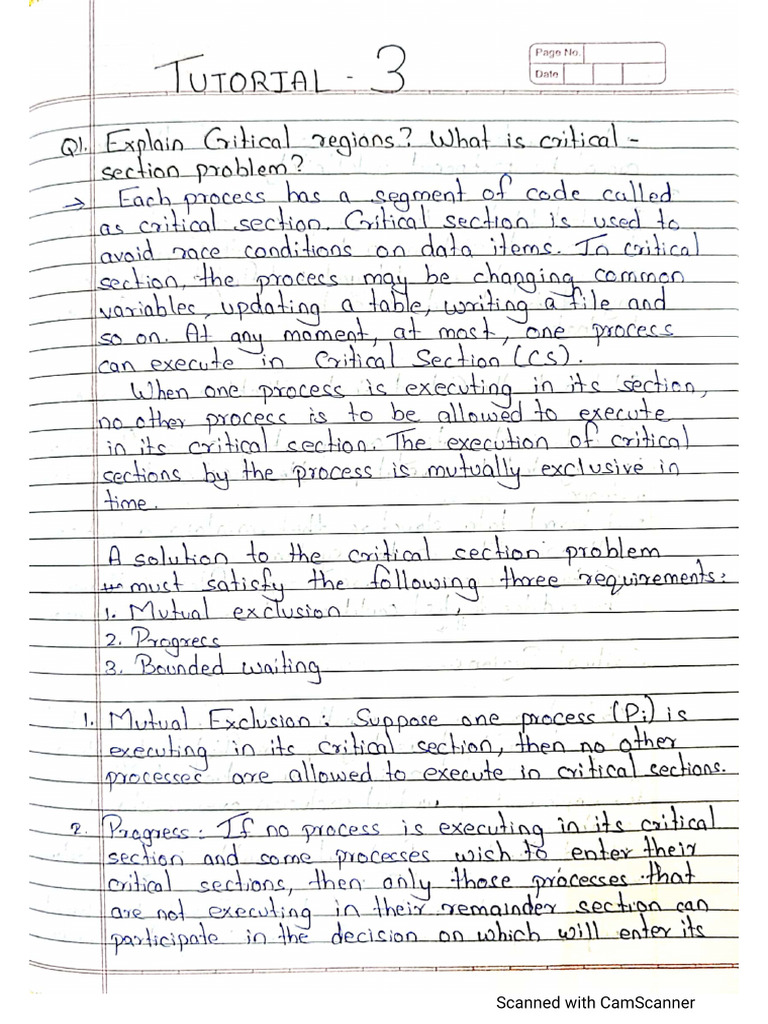 Page No.
Date
TUTORIAL - 3
Q1. Explain Critical regions? What is critical-
section problem?
→ Each process has a segment of code called
as critical section. Critical section is used to
avoid race conditions on data items. In critical
section, the process may be changing common
variables, updating a table, writing a file and
so on. At any moment, at most, one process
can execute in Critical Section (CS).
When one process is executing in its section,
no other process is to be allowed to execute
in its critical section. The execution of critical
sections by the process is mutually exclusive in
time.
A solution to the critical section problem
must satisfy the following three requirements:
1. Mutual exclusion
2. Progress
3. Bounded waiting
1. Mutual Exclusion: Suppose one process (Pi) is
executing in its critical section, then no other
processes are allowed to execute in critical sections.
2. Progress: If no process is executing in its critical
section and some processes wish to enter their
critical sections, then only those processes that
are not executing in their remainder section can
participate in the decision on which will enter its
Scanned with CamScanner